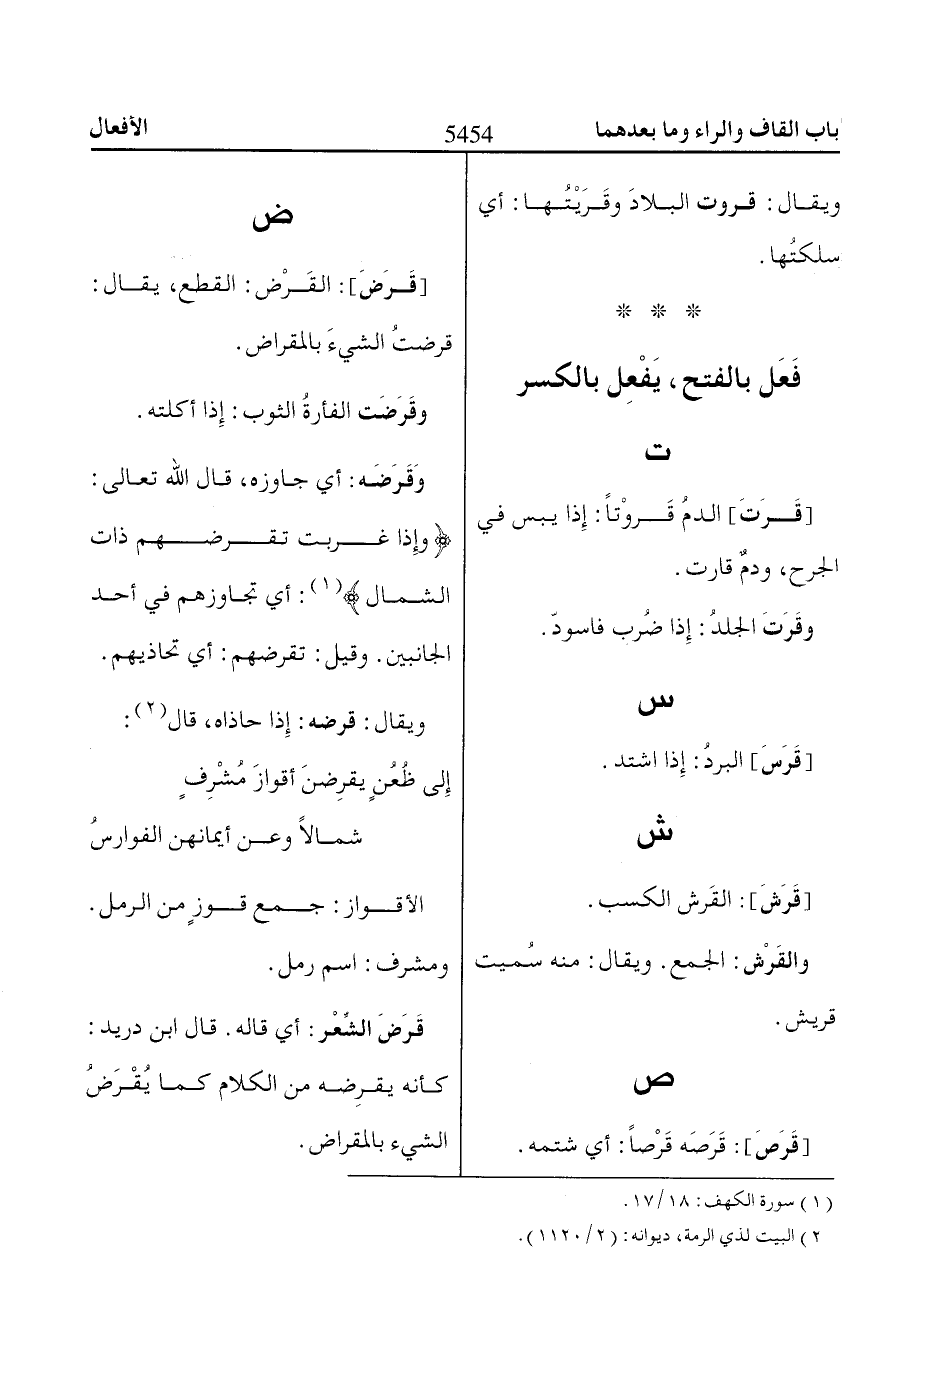 باب القاف والراء وما بعدهما
5454
الأفعال
ويقال: قروت البلادَ وقَرَيْتُها: أي
سلكتُها.
* * *
فَعَل بالفتح، يَفْعِل بالكسر
ت
[قَرَتَ] الدمُ قَروْتاً: إذا يبس في
الجرح، ودمٌ قارت.
وقَرَتَ الجلدُ: إذا ضُرب فاسودّ.
س
[قَرَسَ] البردُ: إذا اشتد.
ش
[قَرَشَ]: القَرش الكسب.
والقَرْش: الجمع. ويقال: منه سُميت
قريش.
ص
[قَرَصَ]: قَرَصَه قَرْصاً: أي شتمه.
ض
[قَرَضَ]: القَرْض: القطع، يقال:
قرضتُ الشيءَ بالمقراض.
وقَرَضَت الفأرةُ الثوب: إذا أكلته.
وَقَرَضَه: أي جاوزه، قال الله تعالى:
﴿وإذا غربت تقرضهم ذات
الشمال﴾(١): أي تجاوزهم في أحد
الجانبين. وقيل: تقرضهم: أي تحاذيهم.
ويقال: قرضه: إذا حاذاه، قال(٢):
إلى ظُعُنٍ يقرِضنَ أقوازَ مُشْرِفٍ
شمالاً وعن أيمانهن الفوارسُ
الأقواز: جمع قوزٍ من الرمل.
ومشرف: اسم رمل.
قَرَضَ الشِّعْر: أي قاله. قال ابن دريد:
كأنه يقرِضه من الكلام كما يُقْرَضُ
الشيء بالمقراض.
(١) سورة الكهف: ١٨/ ١٧.
٢) البيت لذي الرمة، ديوانه: (٢/ ١١٢٠).